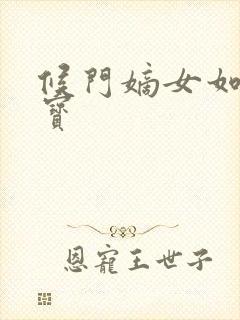 候門嫡女如
寶
恩寵王世子